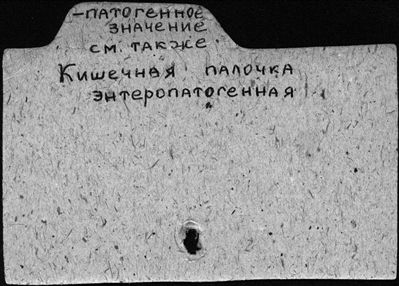 -ПАТОГЕННОЕ
ЗНАЧЕНИЕ
СМ. ТАКЖЕ
КИШЕЧНАЯ ПАЛОЧКА
ЭНТЕРОПАТОГЕННАЯ